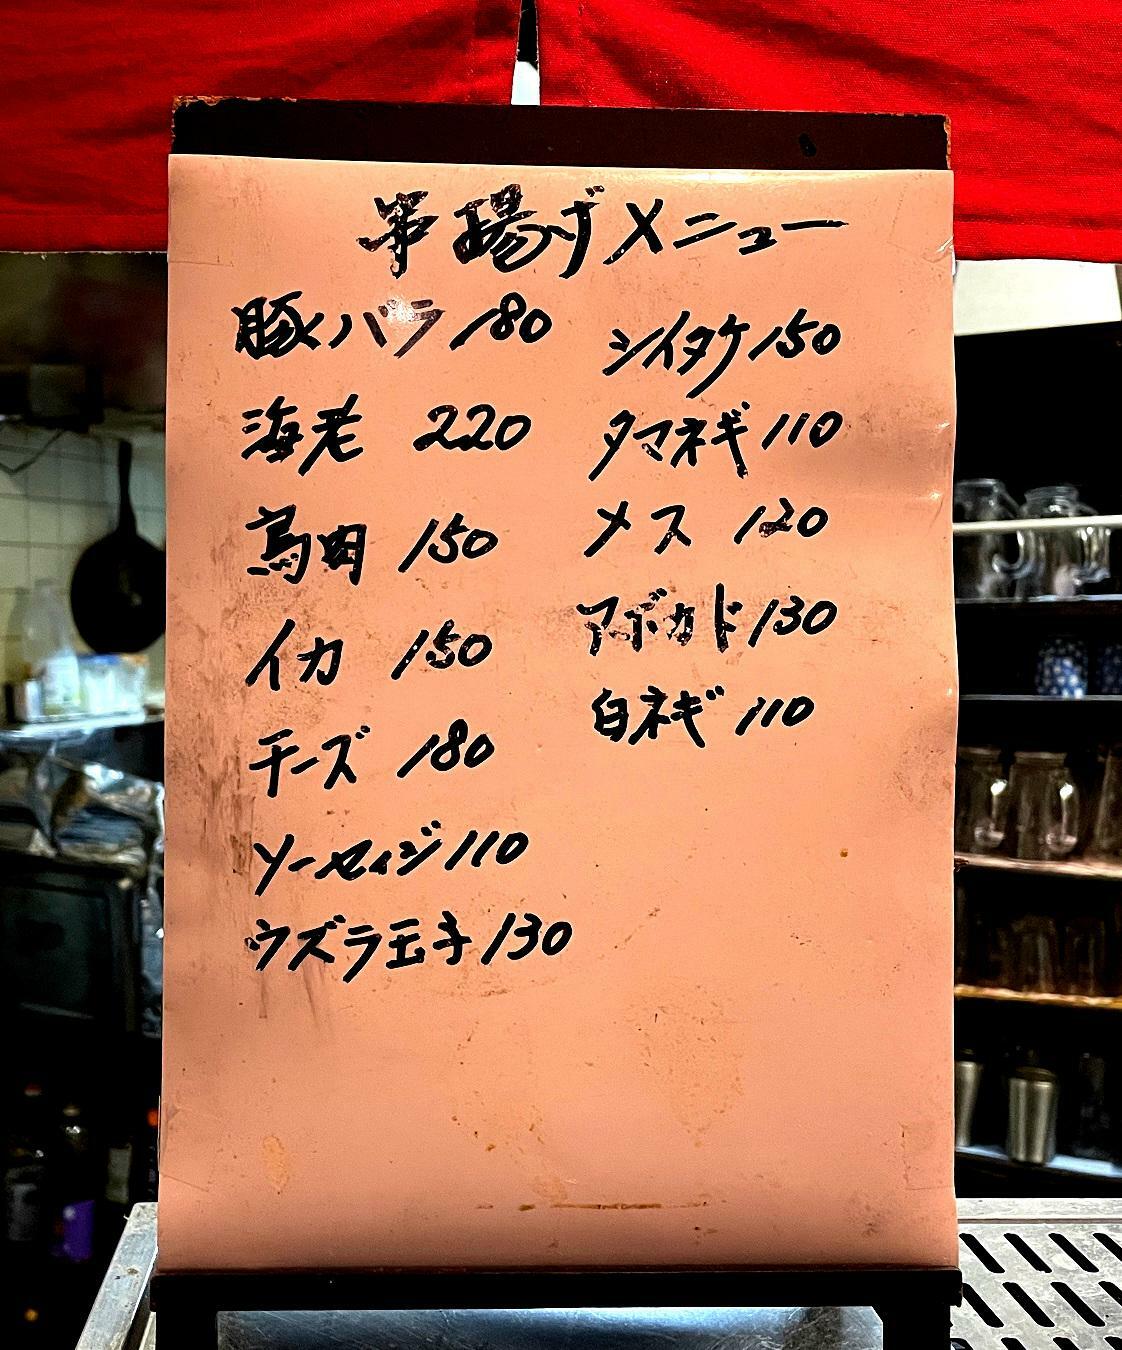 串揚げメニュー
豚バラ 180
海老 220
鳥肉 150
イカ 150
チーズ 180
ソーセイジ 110
ウズラ玉子 130
シイタケ 150
タマネギ 110
ナス 120
アボカド 130
白ネギ 110